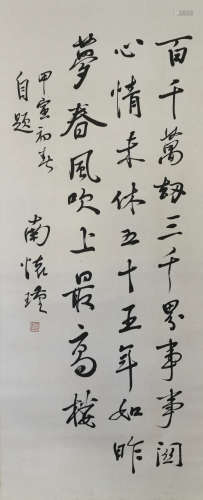 百千萬劫三千界事事関
心情未休五十五年如昨
夢春風吹上最高樓
甲寅初春
自題
南懷瑾